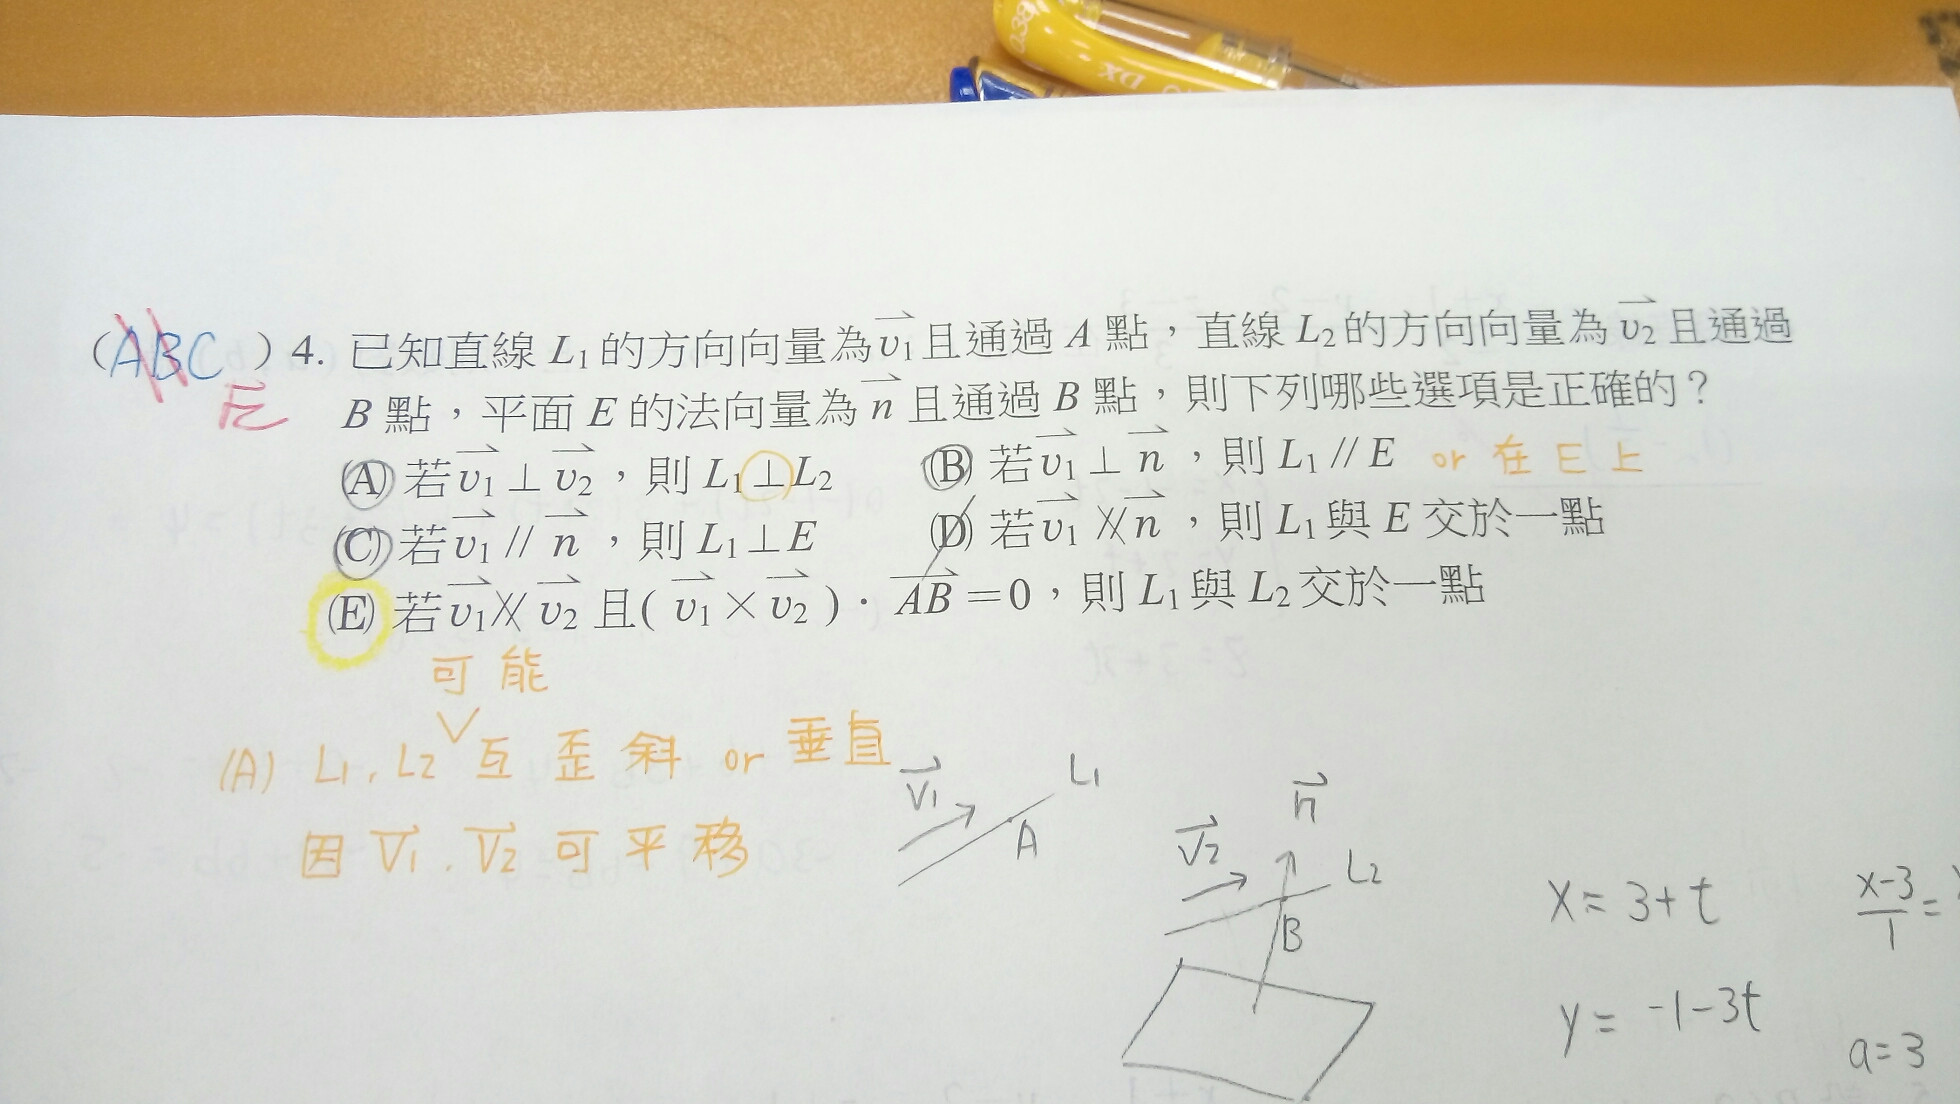 0.38
DX
(ABC) 4. 已知直線 L₁ 的方向向量為 v₁ 且通過 A 點，直線 L₂ 的方向向量為 v₂ 且通過
E
B 點，平面 E 的法向量為 n 且通過 B 點，則下列哪些選項是正確的？
(A) 若 v₁⊥v₂，則 L₁⊥L₂ (B) 若 v₁⊥n，則 L₁∥E or 在 E 上
(C) 若 v₁∥n，則 L₁⊥E (D) 若 v₁∦n，則 L₁ 與 E 交於一點
(E) 若 v₁∦v₂ 且 (v₁×v₂)·AB=0，則 L₁ 與 L₂ 交於一點
可能
(A) L₁, L₂ 互歪斜 or 垂直
因 V₁. V₂ 可平移
V₁ L₁
A
n
V₂ L₂
B
x = 3+t
x-3/1 =
y = -1-3t
a=3